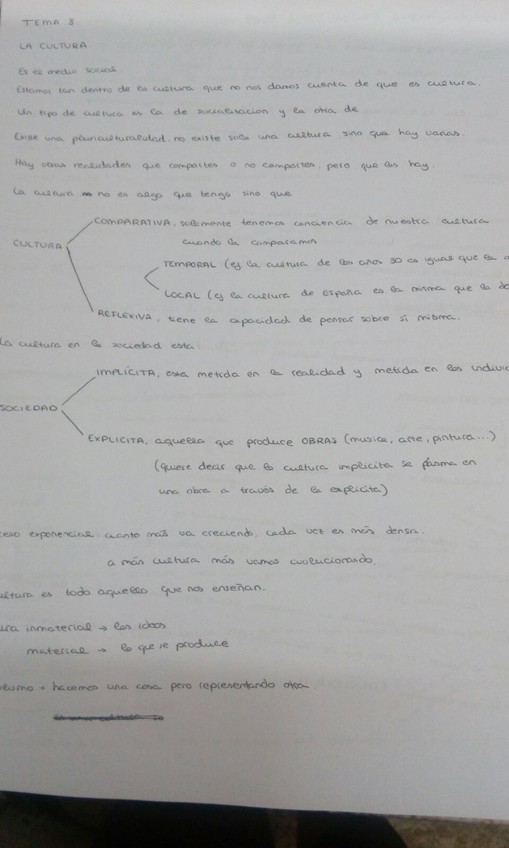 TEMA 3
LA CULTURA
Es el medio social.
Estamos tan dentro de la cultura que no nos damos cuenta de que es cultura.
Un tipo de cultura es la de socialización y la otra de
Existe una pluriculturalidad, no existe solo una cultura sino que hay varias.
Hay otras realidades que compartes o no compartes, pero que las hay.
La cultura no es algo que tengo sino que
COMPARATIVA, solamente tenemos conciencia de nuestra cultura
CULTURA cuando la comparamos
TEMPORAL (ej la cultura de los años 30 es igual que la
LOCAL (ej la cultura de españa es la misma que la de
REFLEXIVA, tiene la capacidad de pensar sobre si misma.
La cultura en la sociedad esta:
IMPLÍCITA, esta metida en la realidad y metida en los individ
SOCIEDAD
EXPLICITA, aquella que produce OBRAS (musica, arte, pintura...)
(quiere decir que la cultura implicita se plasma en
una obra a través de la explicita)
ceso exponencial cuanto más va creciendo, cada vez es más densa.
a más cultura más vamos evolucionando.
ultura es todo aquello que nos enseñan.
ura inmaterial → las ideas
material → lo que se produce
olismo → hacemos una cosa pero representando otra